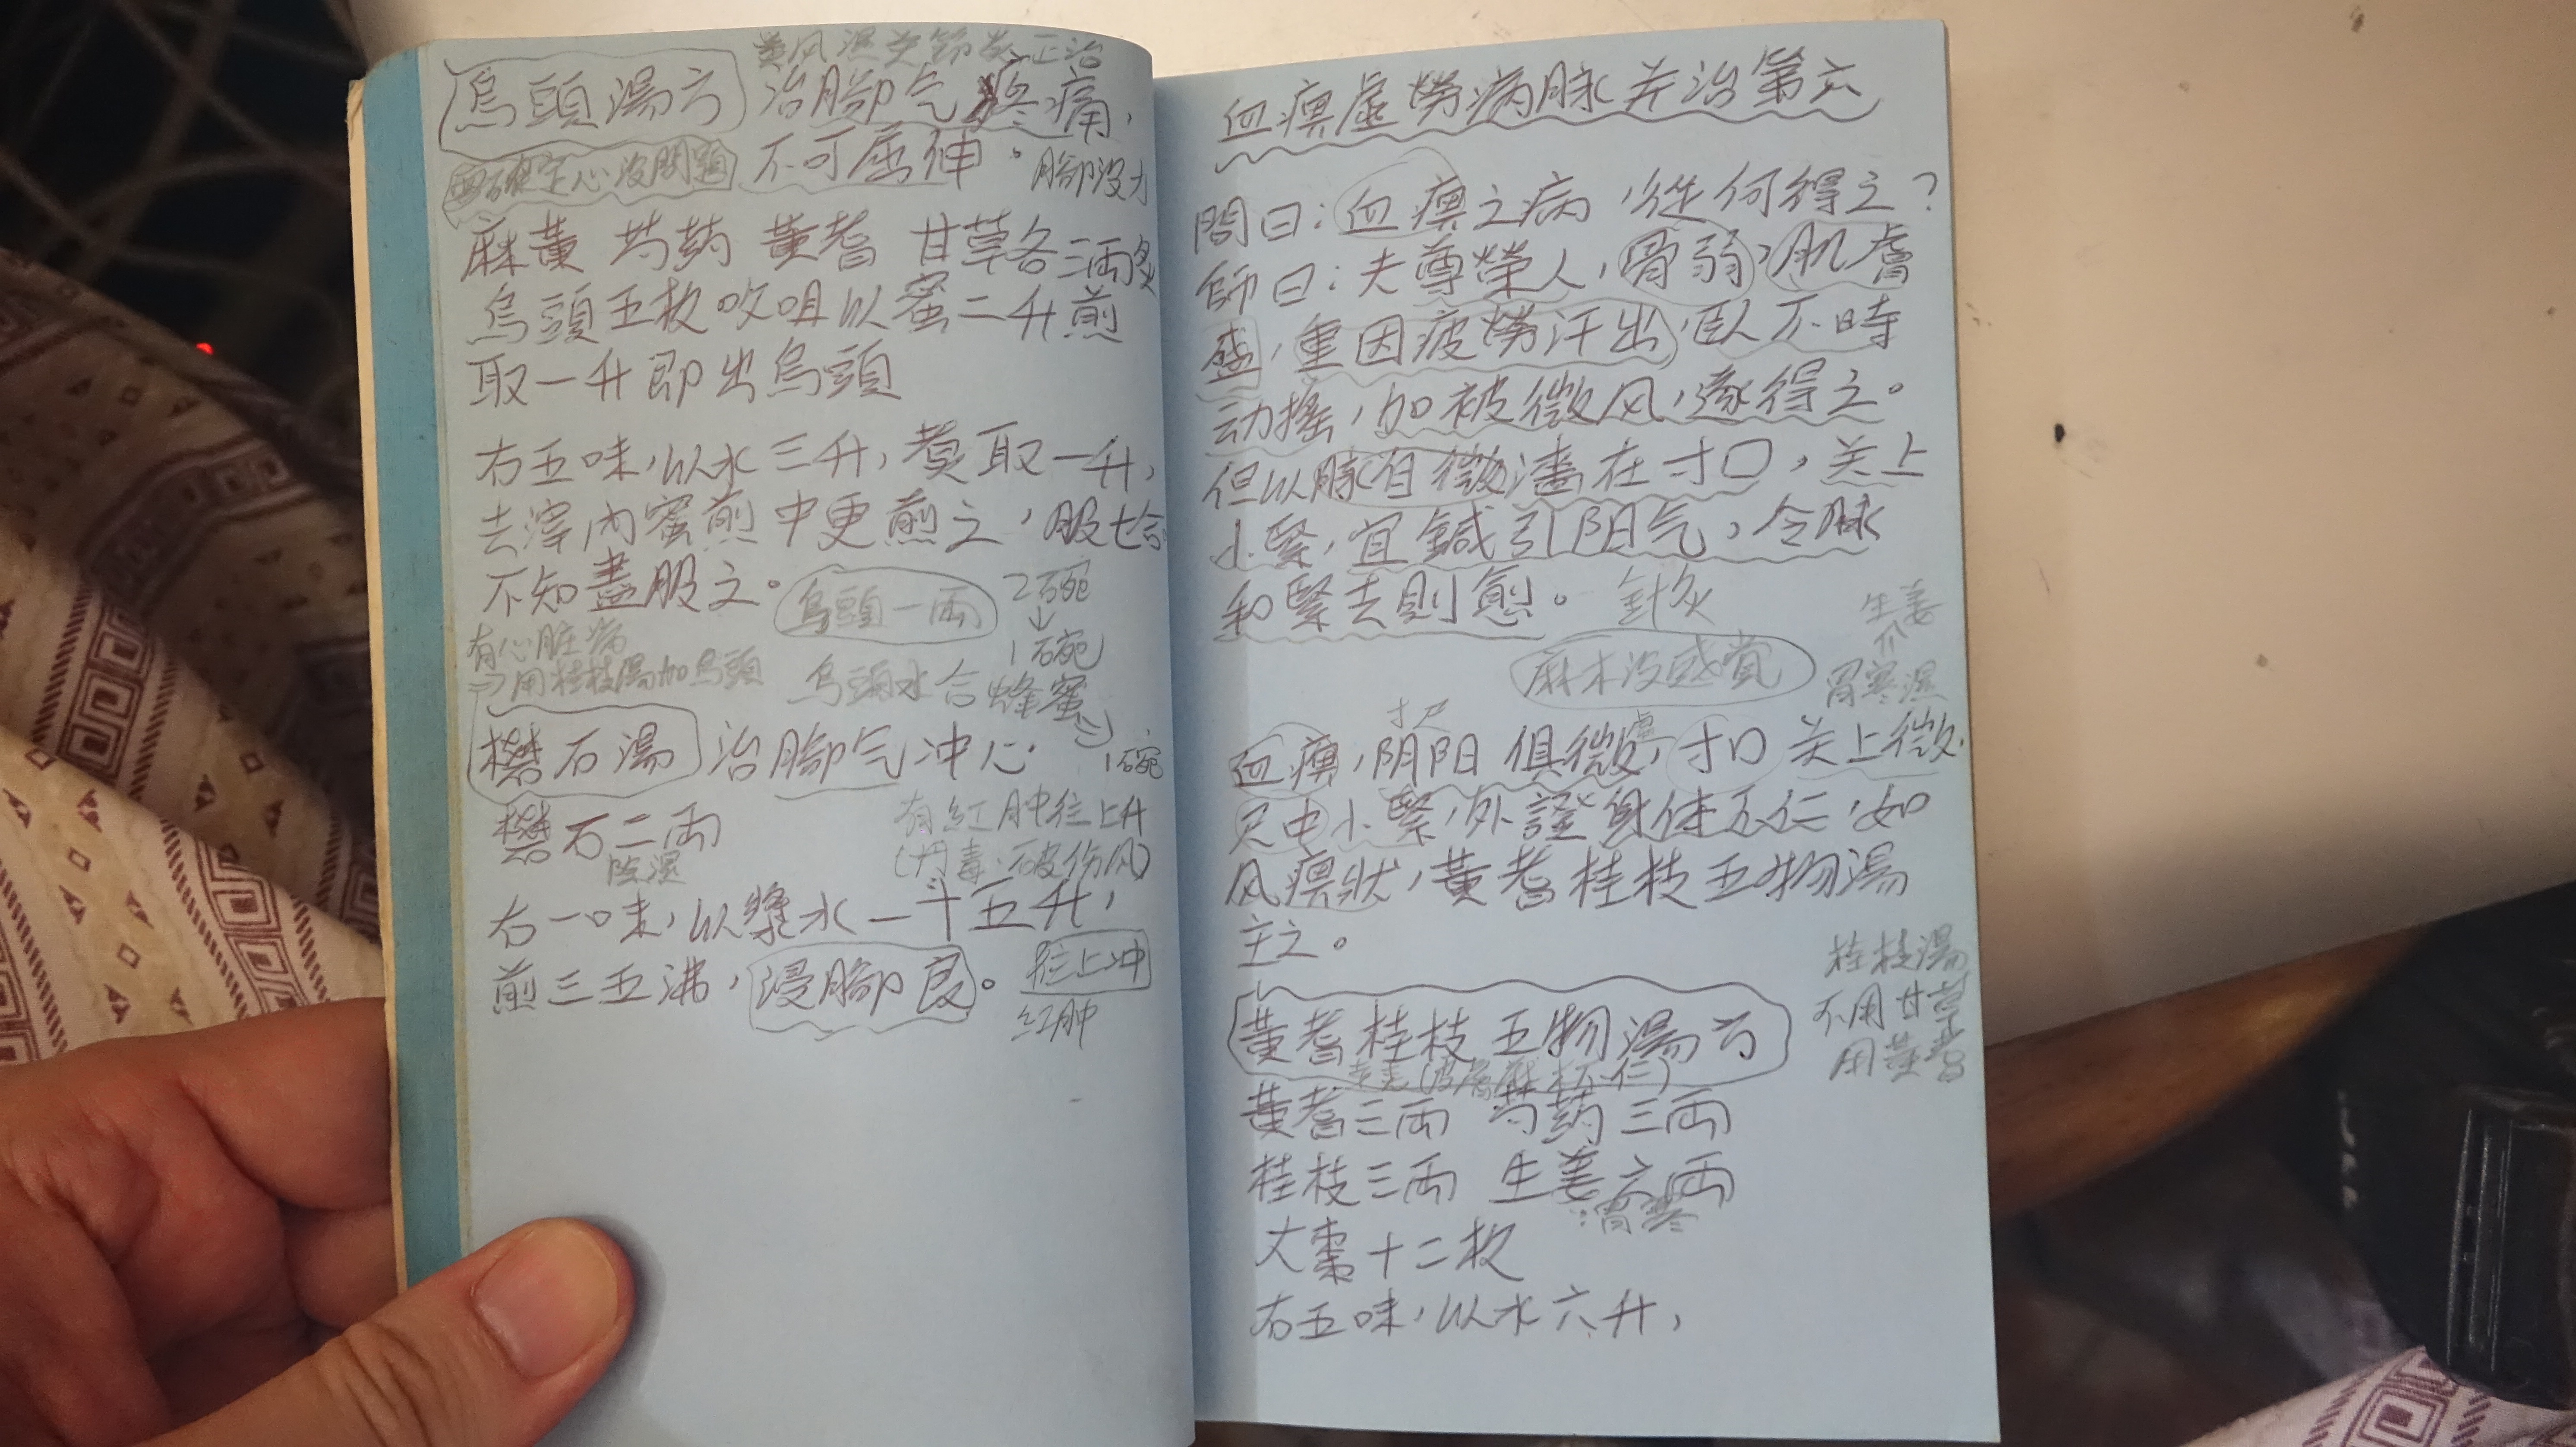 烏頭湯方 治腳气疼痛,
不可屈伸。腳没力
確定心没問題
麻黃 芍药 黃耆 甘草各三兩炙
烏頭五枚㕮咀以蜜二升煎
取一升即出烏頭
右五味,以水三升,煑取一升,
去滓內蜜煎中更煎之,服七合
不知盡服之。
烏頭一兩
2碗
↓
1碗
有心脏病
→用桂枝湯加烏頭
烏頭水合蜂蜜
⇒1碗
礬石湯 治腳气冲心.
礬石二兩
除濕
有紅肿往上升
(丹毒.破伤风)
右一味,以漿水一斗五升,
煎三五沸,浸腳良。
往上冲
红肿
血痹虛勞病脉并治第六
問曰:血痹之病,從何得之?
師曰:夫尊榮人,骨弱,肌膚
盛,重因疲勞汗出,臥不時
动搖,加被微风,遂得之。
但以脉自微濇在寸口,关上
小緊,宜鍼引阳气,令脉
和緊去則愈。 針灸
麻木没感覚
生姜
胃寒濕
寸尺
血痹,阴阳俱微,寸口关上微.
尺中小緊,外證身体不仁,如
风痹狀,黃耆桂枝五物湯
主之。
桂枝湯
不用甘草
用黃耆
黃耆桂枝五物湯方
(皮膚麻木不仁)
黃耆三兩 芍药三兩
桂枝三兩 生姜六兩
∵胃寒
大棗十二枚
右五味,以水六升,